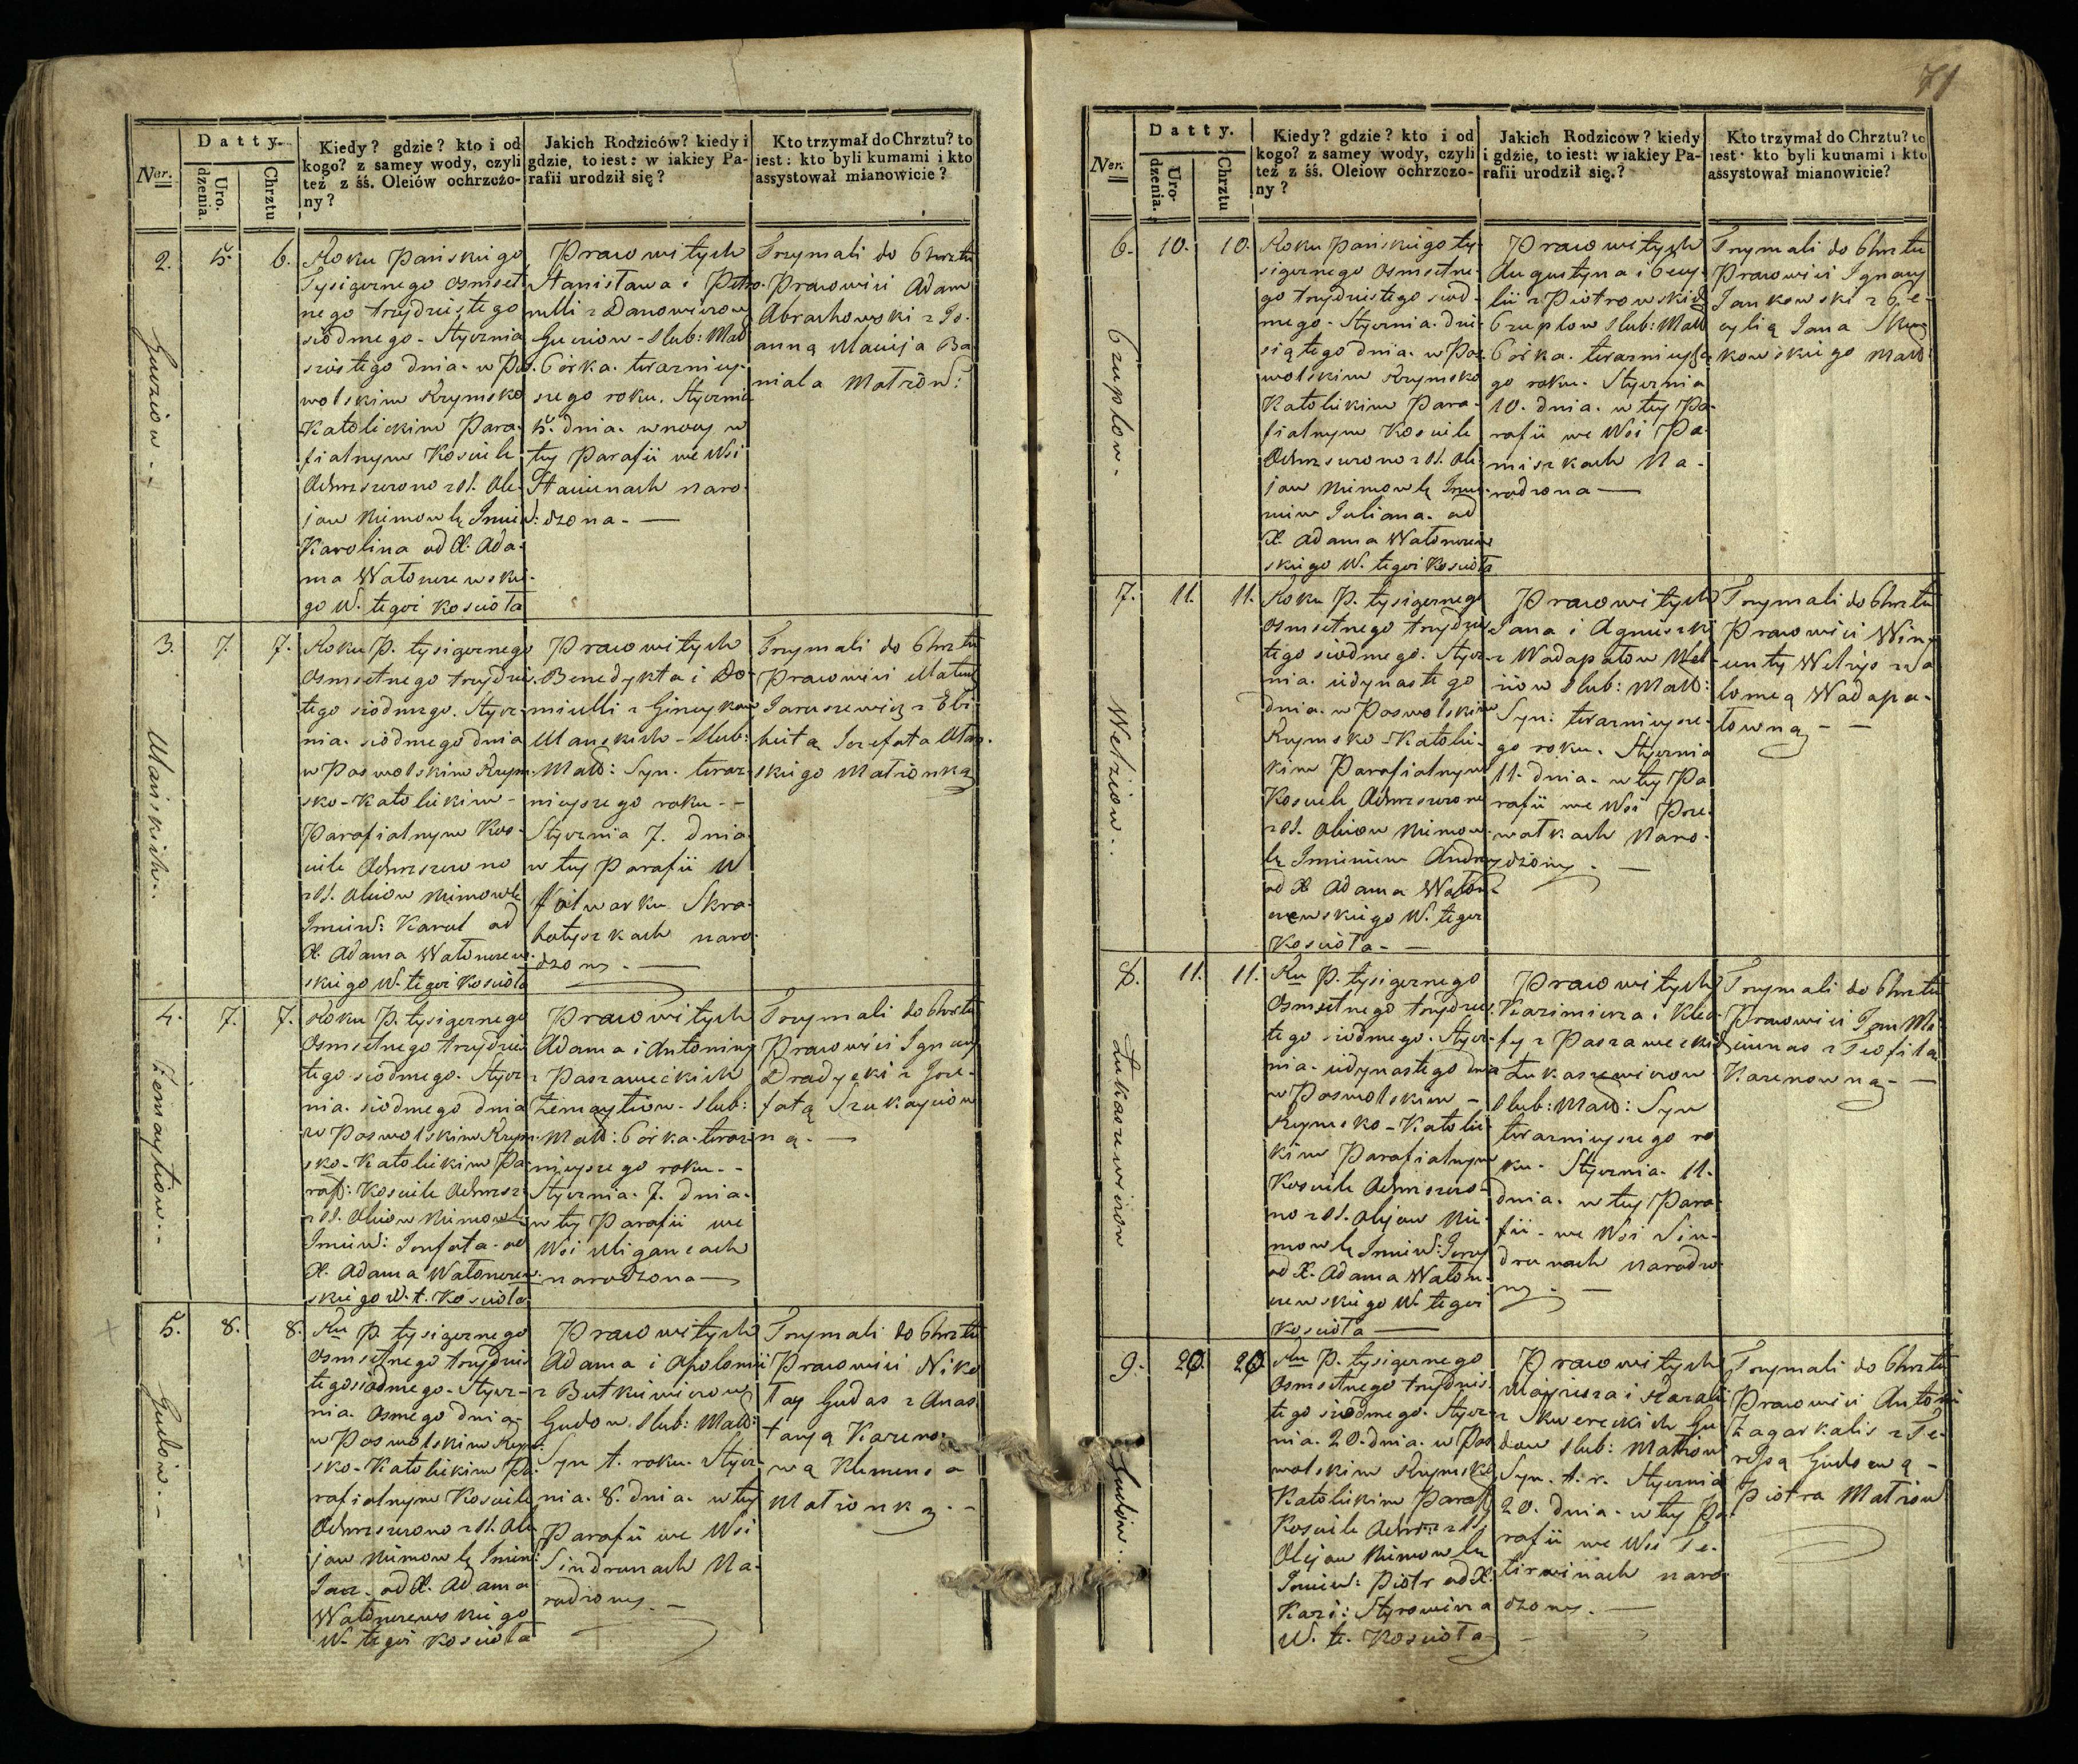 71
Ner.
Datty.
Uro-
dzenia.
Chrztu
Kiedy? gdzie? kto i od
kogo? z samey wody, czyli
też z śś. Oleiów ochrzczo-
ny?
Jakich Rodziców? kiedy i
gdzie, to iest: w iakiey Pa-
rafii urodził się?
Kto trzymał do Chrztu? to
iest: kto byli kumami i kto
assystował mianowicie?
2.
5.
6.
Roku Pańskiego
Tysiącznego osmset
nego trzydziestego
siódmego - Stycznia
szóstego dnia - w Po
wolskim Rzymsko
Katolickim Para-
fialnym Kosciele
Ochrzczono z Ss. Ole-
jow Niemowlę Imien:
Karolina od X. Ada-
ma Watoncewskie-
go W. tegoż Kościoła
Prawowitych
Stanisława i Petro-
nelli z Danowiczow
Guciow - Slub: Mał
Córka. terazniey-
szego roku. Stycznia
5. dnia. w nocy w
tey Parafii we Wsi
naro-
dzona. —
Trzymali do Chrztu
Prawowici Adam
Abrachowski z Jo-
anną Macieja Ba
niala Małżon:
3.
7.
7.
Roku P. tysiącznego
Osmsetnego trzydzies
tego siódmego. Stycz-
nia. siódmego dnia
w Poswolskim Rzym-
sko-Katolickim -
Parafialnym Kos-
ciele Ochrzczono
z Ss. Oleiow Niemowlę
Imien: Karol od
X. Adama Watoncew-
skiego W. tegoż Kościoła
Prawowitych
Benedykta i Do-
micelli z Gineykow
Mańskich - Slub:
Małż: Syn. teraz-
nieyszego roku. -
Stycznia 7. dnia
w tey Parafii w
folwarku Skra-
botyszkach naro-
dzony. —
Trzymali do Chrztu
Prawowici Mateusz
Jaruszewicz z Elż-
bietą Jozefata Mań-
skiego Małżonką
Mańskich. -
4.
7.
7.
Roku P. tysiącznego
Osmsetnego trzydzies
tego siódmego. Stycz
nia. siódmego dnia
w Poswolskim Rzym-
sko-Katolickim Pa-
raf: Kosciele Ochrzcz:
z Ss. Oleiow Niemowlę
Imien: Jozefata. od
X. Adama Watoncew-
skiego W. t. Kościoła
Prawowitych
Adama i Antoniny
z Paszaweckich
Żemaytiow. Slub:
Małż: Córka. teraz
nieyszego roku. -
Stycznia. 7. dnia.
w tey Parafii we
Wsi Migancach
narodzona —
Trzymali do Chrztu
Prawowici Ignacy
Dradycki z Joze-
fatą Szukayciów
ną. —
Żemaytiow. -
5.
8.
8.
Ru P. tysiącznego
Osmsetnego trzydzies
tego siódmego. Stycz-
nia. Osmego dnia
w Poswolskim Rzym
sko-Katolickim Pa-
rafialnym Kosciele
Ochrzczono z Ss. Ole-
jow Niemowlę Imien:
Jan. od X. Adama
Watoncewskiego
W. tegoż Kościoła
Prawowitych
Adama i Apolonii
z Butkiewiczow
Gudow. Slub: Małż:
Syn t. roku. Stycz-
nia. 8. dnia. w tey
Parafii we Wsi
Sindrunach Na-
rodzony. —
Trzymali do Chrztu
Prawowici Niko
łay Gudas z Anas
tazyą Kareno-
wą Klemensa
Małżonką. -
Gudów. -
6.
10.
10.
Roku Pańskiego ty-
siącznego Osmsetne-
go trzydziestego siod-
mego. Stycznia. dzie-
siątego dnia. w Pos-
wolskim Rzymsko
Katolickim Para-
fialnym Kosciele
Ochrzczono z Ss. Ole-
jow Niemowlę Imie-
niem Juliana. od
X. Adama Watoncew
skiego W. tegoż Kościoła
Prawowitych
Augustyna i Cecy-
lii z Piotrowskich
Czeplow Slub: Małż
Córka. teraznieysze
go roku. Stycznia
10. dnia. w tey Pa-
rafii we Wsi Pa-
miszkach Na-
rodzona —
Trzymali do Chrztu
Prawowici Ignacy
Jankowski z Ce-
cylią Jana
kowskiego Małż
7.
11.
11.
Roku P. tysiącznego
osmsetnego trzydzies
tego siódmego. Stycz-
nia. iedynastego
dnia. w Poswolskim
Rzymsko-Katolic-
kim Parafialnym
Kosciele Ochrzczono
z Ss. Oleiow Niemow-
lę Imieniem Andrzey
od X. Adama Waton-
cewskiego W. tegoż
Kościoła. —
Prawowitych
Jana i Agnieszki
z Wadapałow Wel-
iiow Slub: Małż:
Syn: teraznieysze-
go roku. Stycznia
11. dnia. w tey Pa
rafii we Wsi Prze-
wałkach Naro-
dzony. —
Trzymali do Chrztu
Prawowici Win-
centy Welżys z Sa
lomeą Wadapa-
łowną —
8.
11.
11.
Ru P. tysiącznego
Osmsetnego trzydzies
tego siódmego. Stycz-
nia. iedynastego dnia
w Poswolskim -
Rzymsko-Katolic-
kim Parafialnym
Kosciele Ochrzczo-
no z Ss. Olejow Nie-
mowlę Imien: Jerzy
od X. Adama Waton-
cewskiego W. tegoż
Kościoła —
Prawowitych
Kazimierza i Kleo-
fy z Paszaweckich
Łukaszewiczow
Slub: Małż: Syn
teraznieyszego ro
ku. Stycznia. 11.
dnia. w tey Para
fii - we Wsi Sin-
drunach Narodzo-
ny. —
Trzymali do Chrztu
Prawowici Jan
z Teofilą
Karenowną —
Łukaszewiczow
9.
20.
20.
Ru P. tysiącznego
Osmsetnego trzydzies-
tego siódmego. Stycz
nia. 20. dnia. w Pos
wolskim Rzymsko
Katolickim Paraf:
Kosciele Ochrz: z Ss.
Olejow Niemowlę
Imien: Piotr od X.
Kazi: Styrowicza
W. t. Kościoła
Prawowitych
i Rozalii
z Skwereckich Gu
dow Slub: Małżon
Syn. t. r. Stycznia
20. dnia. w tey Pa-
rafii we Wsi Te-
tirwinach naro-
dzony. —
Trzymali do Chrztu
Prawowici Antoni
Zagarkalis z Te-
ressą Gudową -
Piotra Małżon
Gudów.